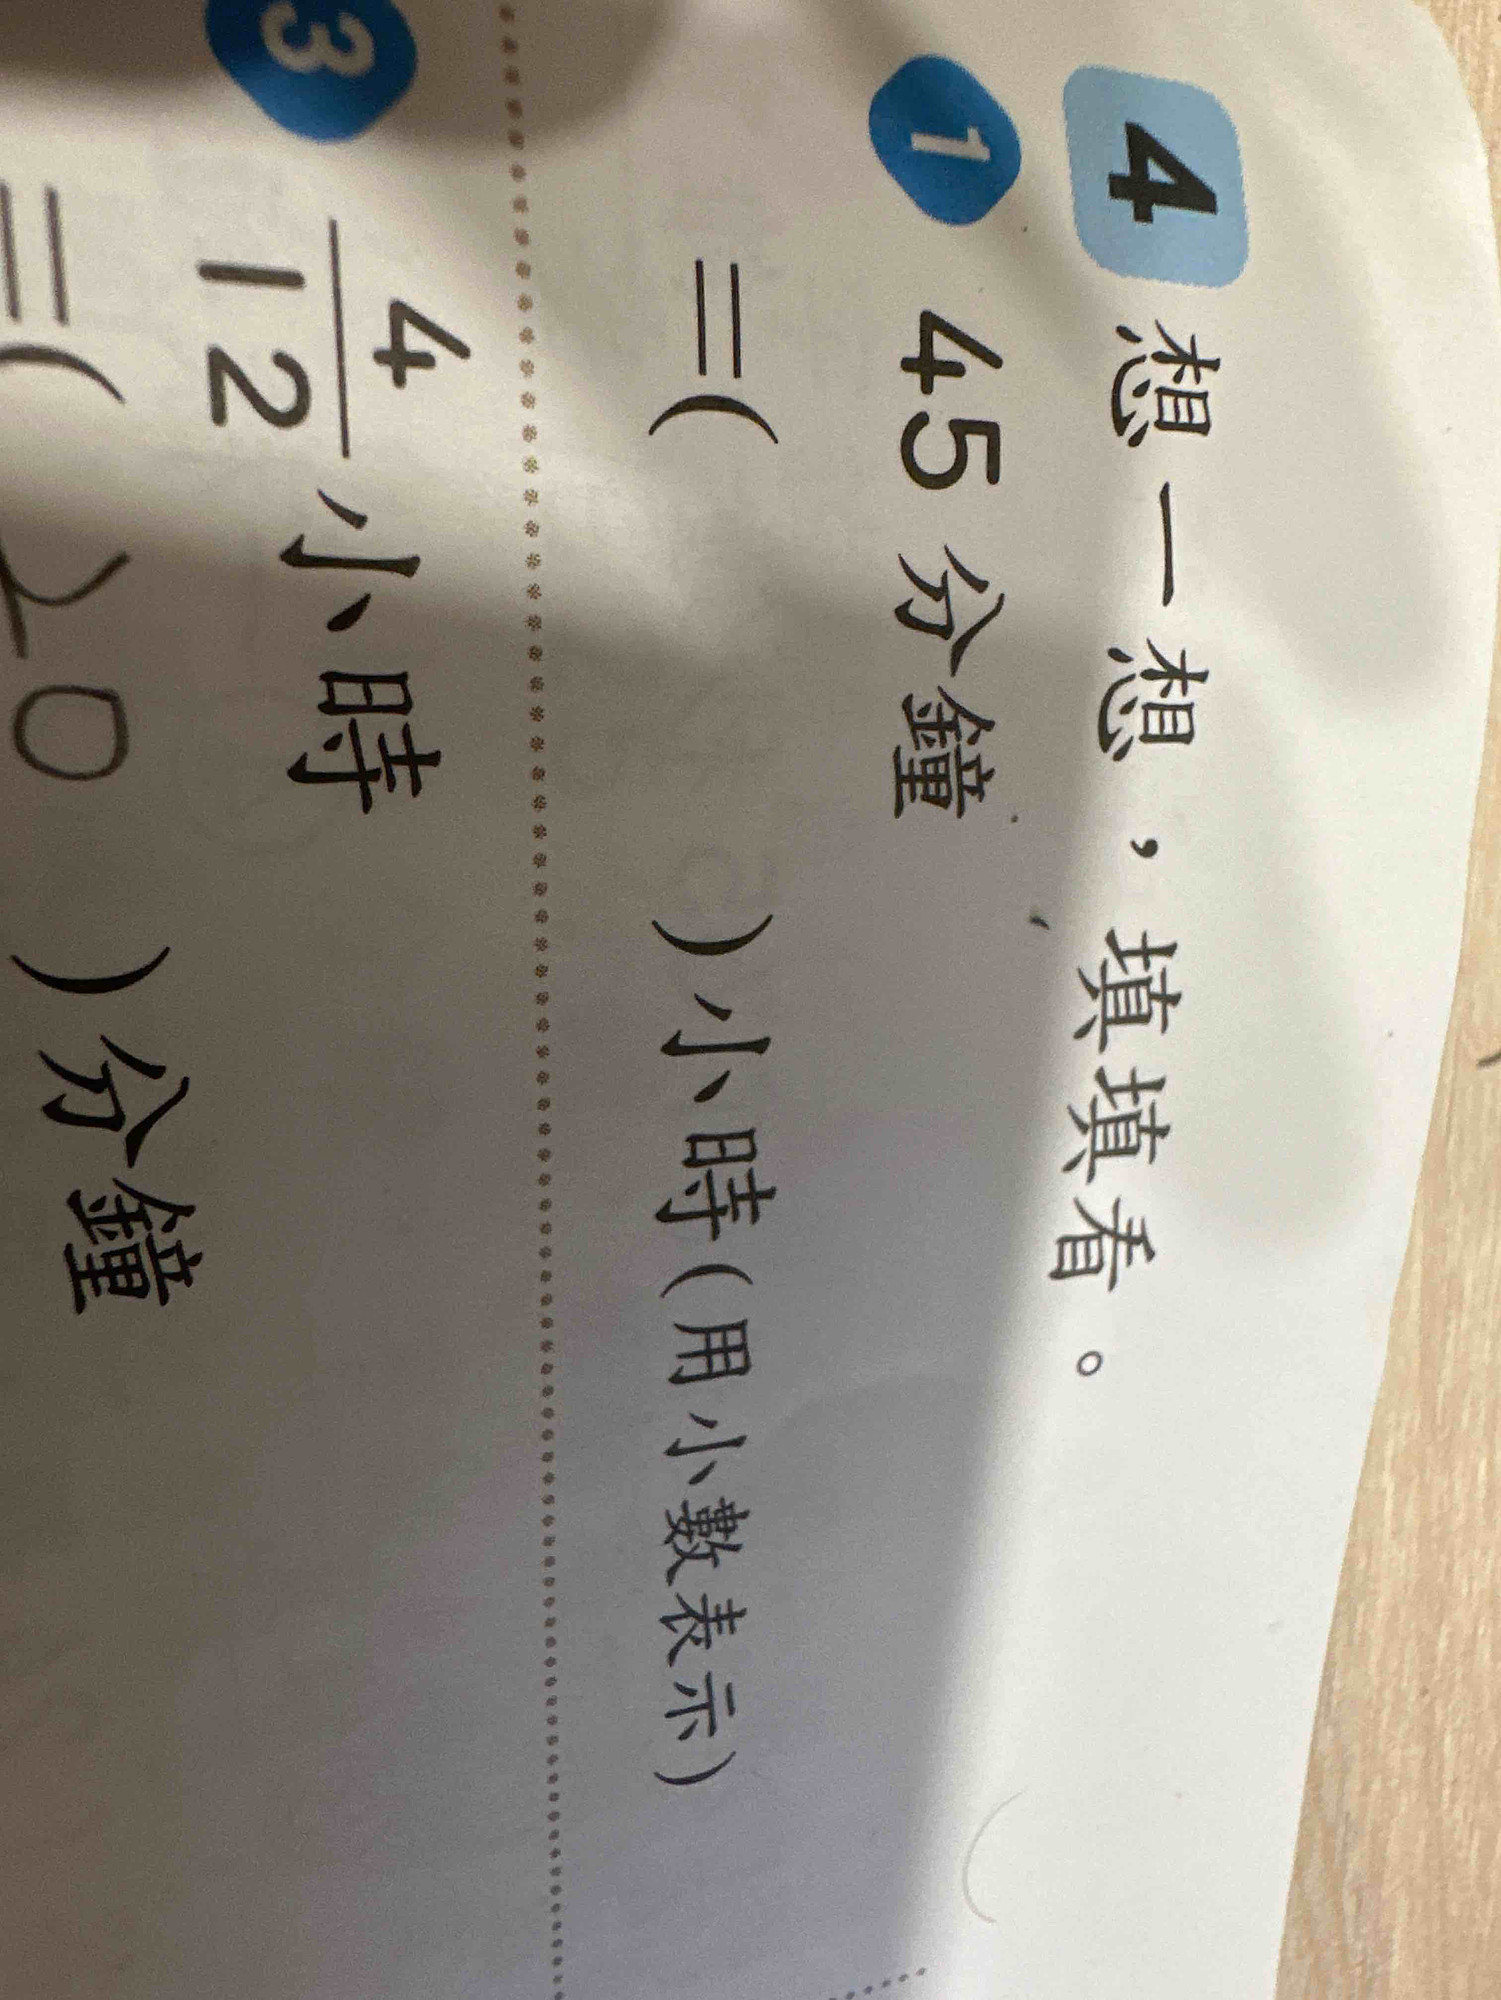 4 想一想，填填看。
1 45分鐘
=( )小時(用小數表示)
3 4/12小時
=( 20 )分鐘